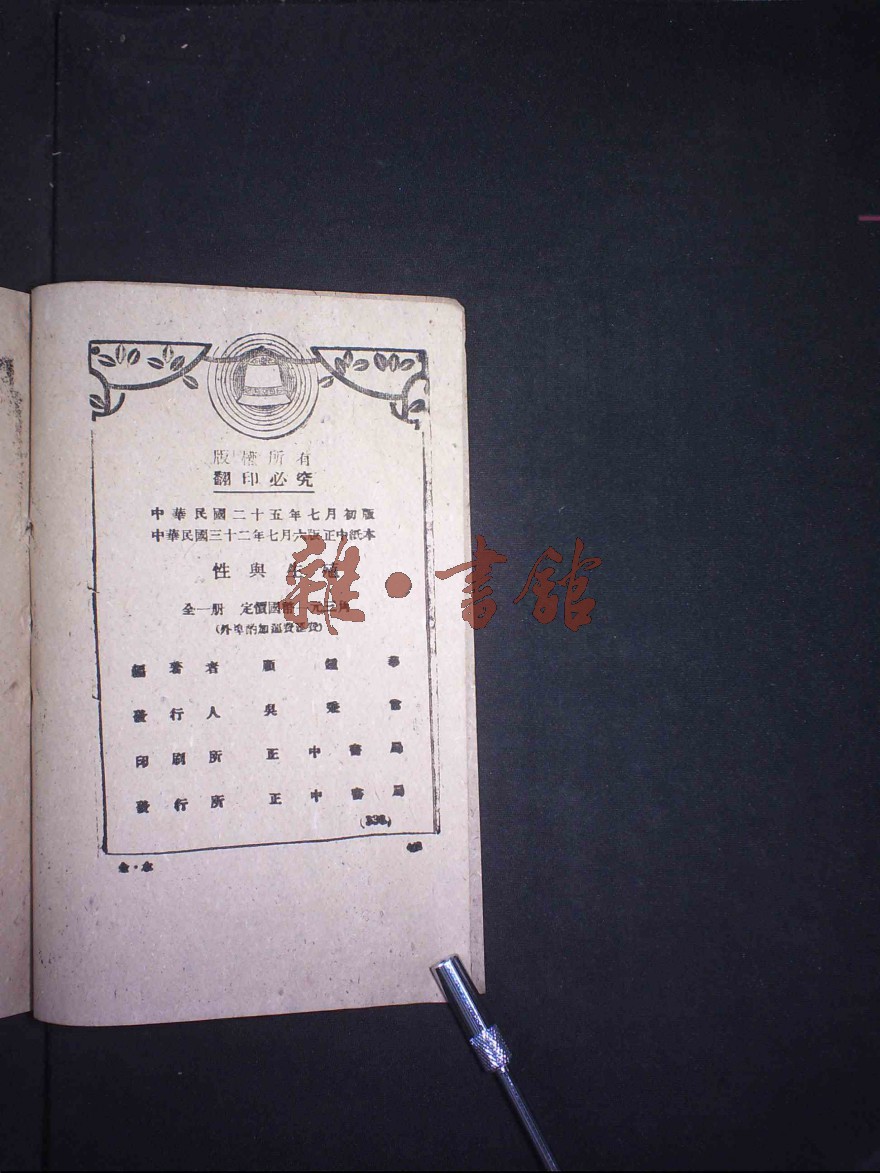 版權所有
翻印必究
中華民國二十五年七月初版
中華民國三十二年七月六版正中紙本
性與生殖
全一册 定價國幣一元三角
(外埠酌加運費滙費)
編著者 顧 華
發行人 吳秉常
印刷所 正中書局
發行所 正中書局
雜·書館